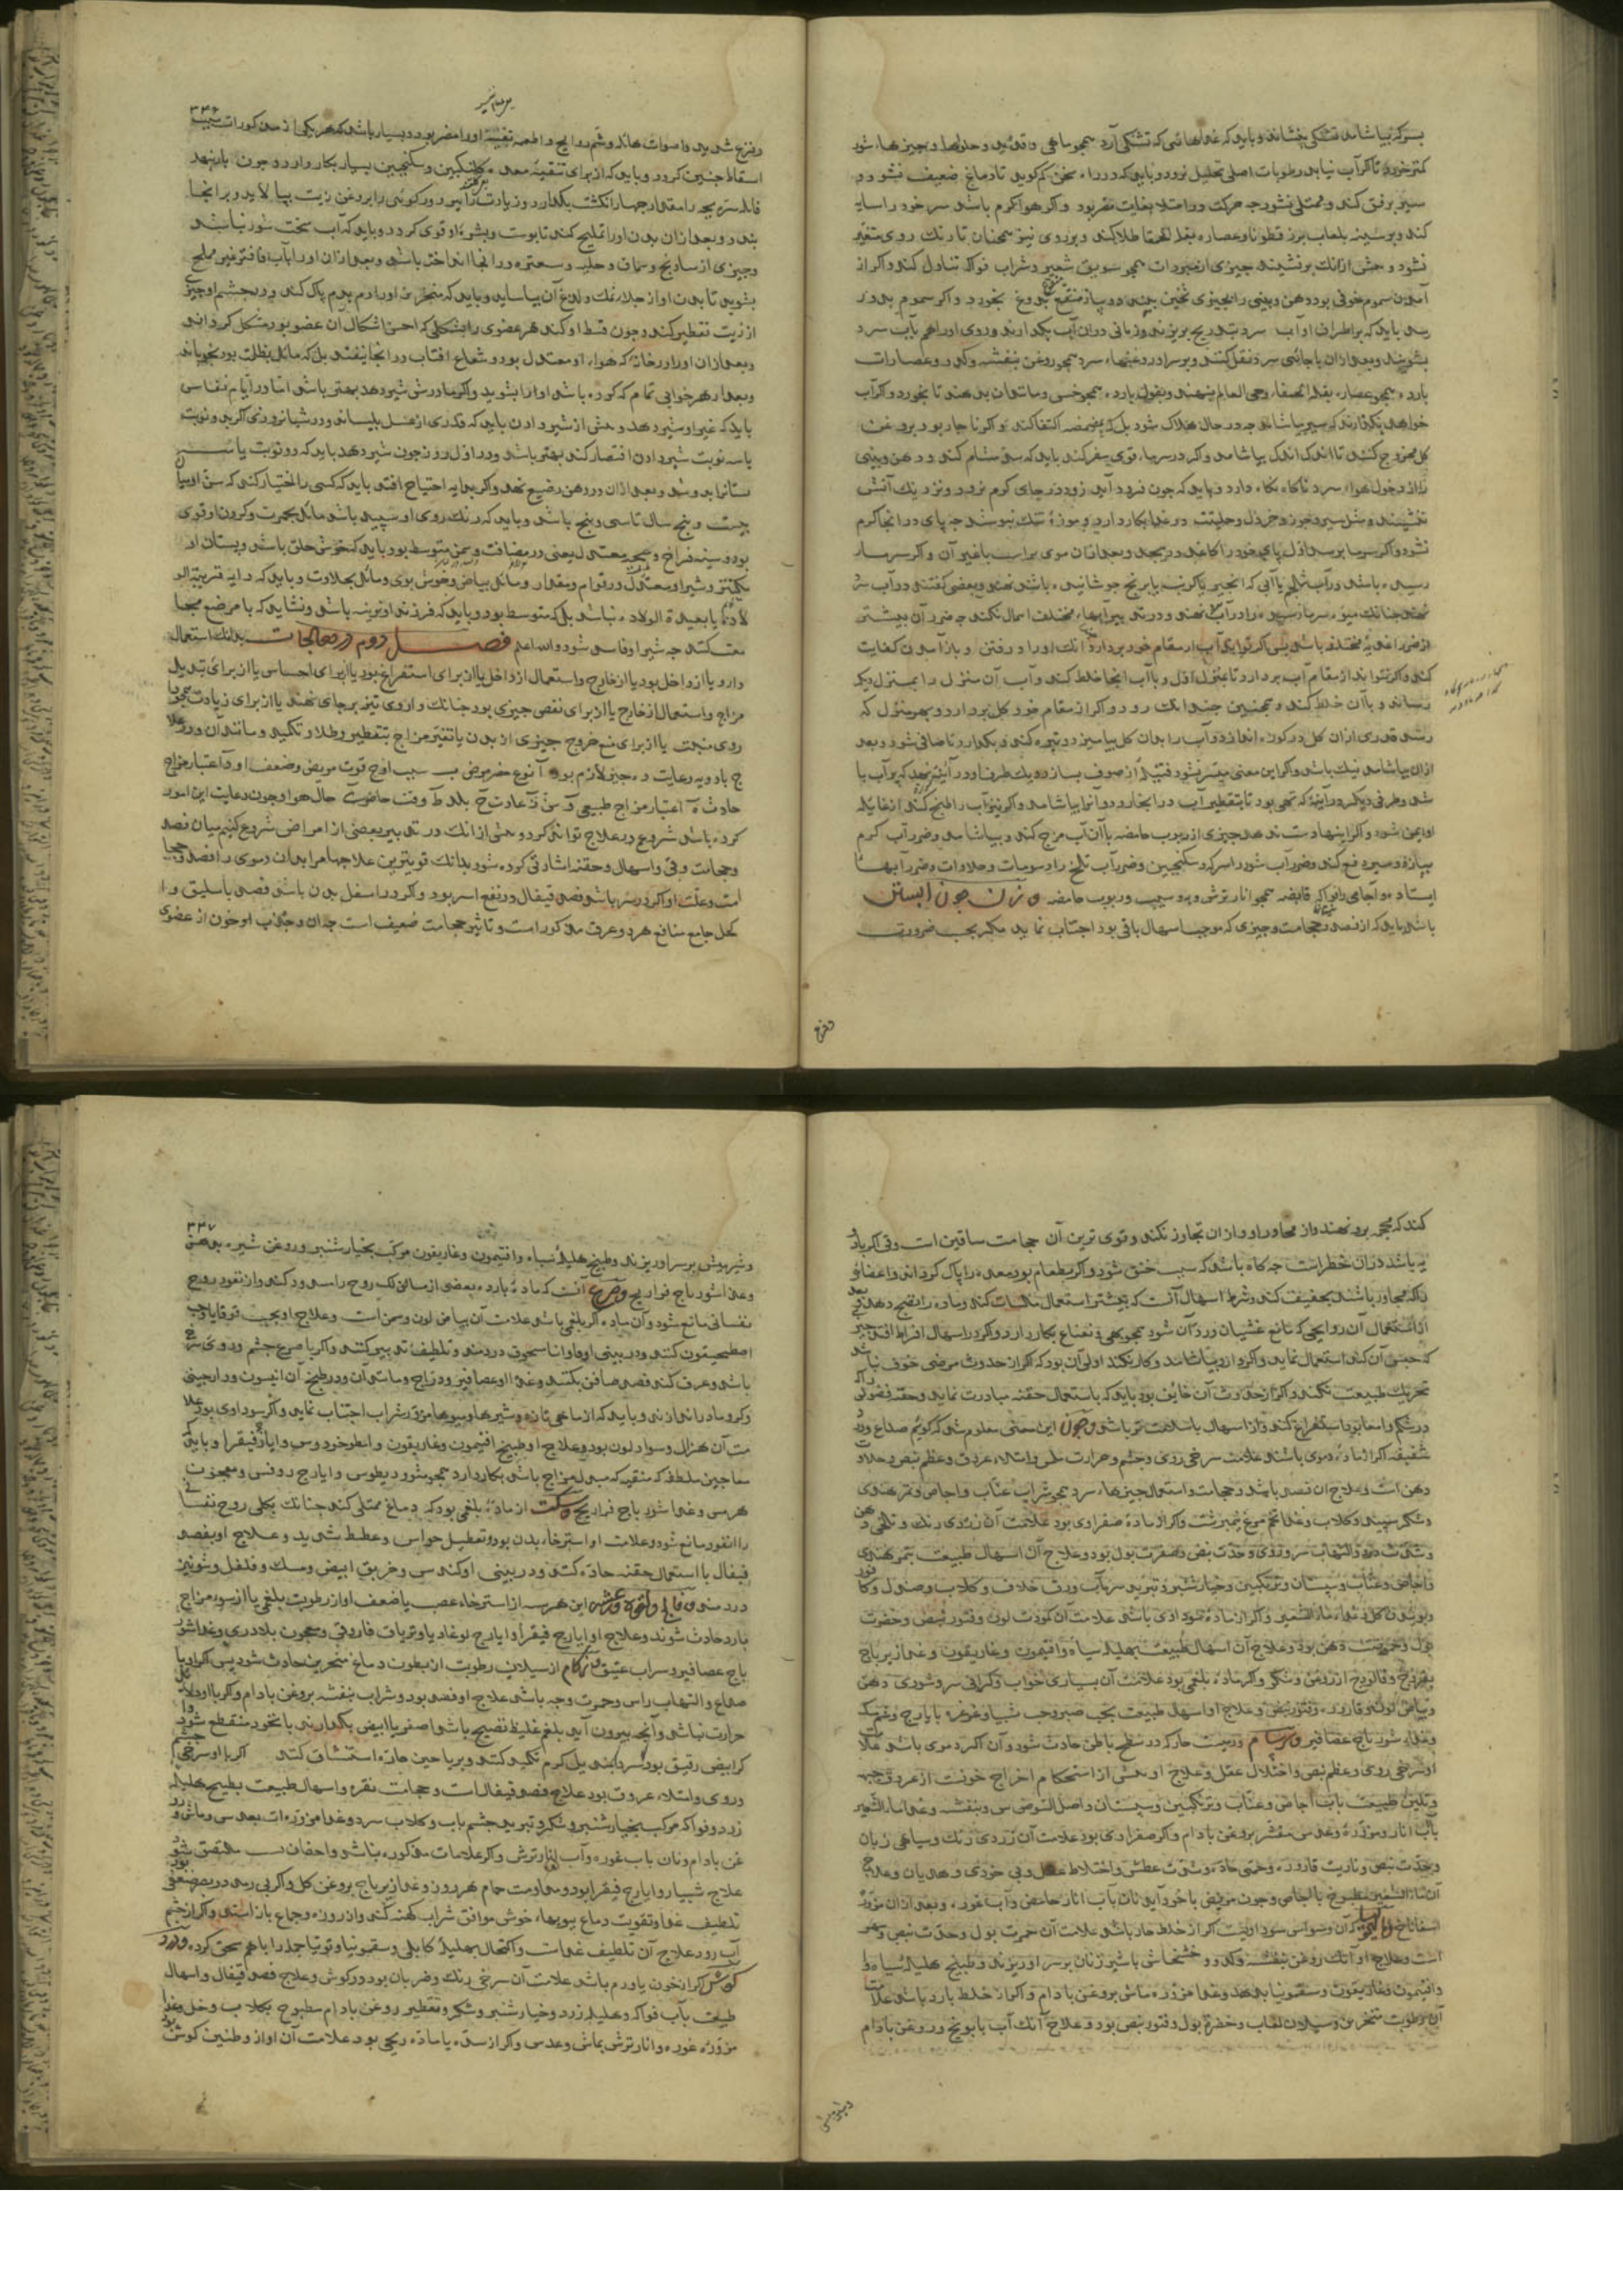 بسرکه بیاشامد تشنگی بنشاند و باید که غذاهائی که تشنگی آرد همچو ماهی و حلواها و چیزهاء شور
کمتر خورد تا اگر آب نیابد رطوبات اصلی تحلیل نرود و باید که در راه سخن کم گوید تا دماغ ضعیف نشود و
سیر برفق کند و ممتلی نشود چه حرکت در امتلا بغایت مضر بود و اگر هوا گرم باشد سر خود را سایه
کند و بر سینه بلعاب بزرقطونا و عصاره بقله الحمقا طلا کند و بر روی نیز همچنان تا رنک روی متغیر
نشود و پیش از آنک برنشیند چیزی از مبردات همچو سویق شعیر و شراب فواکه تناول کند و اگر از
آمدن سموم خوفی بود دهن و بینی را بچیزی ببندد و پیاز بدوغ بخورد و اگر سموم بدو
رسد باید که بر اطراف او آب سرد بتدریج بریزند و زمانی در آن آب بگذارند و روی او را هم بآب سرد
بشویند و بعد از آن بجائی سرد نقل کنند و بر سر او روغنهاء سرد همچو روغن بنفشه و کدو و عصارات
بارده همچو عصاره بقلة الحمقا و حی العالم بنهند و بقول بارده همچو خس و مانند آن بدهند تا بخورد و اگر آب
خواهد نگذارند که سیر بیاشامد چه در حال هلاک شود بل که بمضمضه اکتفا کند و اگر ناچار بود بروغن
گل ممزوج کنند تا اندک اندک بیاشامد و اگر در سرماء قوی سفر کند باید که دهن و بینی
را از دخول هواء سرد نگاه دارد و باید که چون فرود آید زود در جای گرم نرود و نزدیک آتش
ننشیند و مثل سیر و جوز و خردل و حلتیت در غذا بکار دارد و موزه تنک نپوشد چه پای در آنجا گرم
نشود و اگر سرما برسد اول پای خود را کاغذ در پیچد و بعد از آن موی بز یا غیر آن و اگر سرما
رسیده باشد در آب شلغم یا آبی که انجیر یا کرنب یا برنج جوشانیده باشند نهند و بعضی گفتند در آب سرد
نهند چنانک میوه سرما رسیده را در آب نهند و در تدبیر آبهاء مختلف اهمال نکند چه ضرر آن بیشتر
از ضرر اغذیه مختلف باشد پس اگر تواند آب از مقام خود بردارد آنک او را در رفتن و باز آمدن کفایت
کند و اگر نتواند از مقام آب بردارد تا بمنزل اول و با آب آنجا خلط کند و آب آن منزل را بمنزل دیگر
رساند و با آن خلط کند و همچنین چندانک رود و اگر از مقام خود گل بردارد و بهر منزل که
رسد قدری از آن گل در کوزه اندازد و آب را بدان گل بیامیزد و تیره کند و بگذارد تا صافی شود و بعد
از آن بیاشامد نیک باشد و اگر این معنی میسر نشود فتیلۀ از صوف بسازد و یک طرف او در آنیۀ نهد که پر آب با
شد و طرفی دیگر در آنیۀ که تهی بود تا بتقطیر آب در آنجا رود و آنرا بیاشامد و اگر نیز آب را طبخ کنند از غایله
او ایمن شود و اگر اینها دست ندهد چیزی از ربوب حامضه با آن آب مزج کند و بیاشامد و ضرر آب گرم
بپیاز و سیر دفع کند و ضرر آب شور را بسرکه و سکنجبین و ضرر آب تلخ را بدسومات و حلاوات و ضرر آبهاء
ایستاده و آجامی را بفواکه قابضه همچو انار ترش و به و سیب و ربوب حامضه و زن چون آبستن
باشد باید که از فصد و حجامت و چیزی که موجب اسهال باقی بود اجتناب نماید مگر بحسب ضرورت
و فزع
۳۳۶
و فزع شدید و اصوات هائله و شم روایح و اطعمه او را مضر بود و بسیار باشد که هر یکی از مذکورات سبب
اسقاط جنین گردد و باید که از برای تنقیۀ معده گلنگبین و سکنجبین بسیار بکار دارد و چون بار بنهد
قابله سره بچه را مقدار چهار انگشت بگذارد و زیادت را ببرد و رکوئی را بروغن زیت بیالاید و بر آنجا
بندد و بعد از آن بدن او را تملیح کند تا پوست و بشرۀ او قوی گردد و باید که آب سخت شور نباشد
و چیزی از سادنج و سماق و حلبه و سعتر در آنجا انداخته باشد و بعد از آن او را بآب فاتر غیر مملح
بشوید تا بدن او از نمک و لدغ آن بیاساید و باید که منخرین او را دم بدم پاک کند و در چشم او چیزی
از زیت تقطیر کند و چون قسط او کند هر عضوی را بشکلی که احسن اشکال آن عضو بود مشکل گرداند
و بعد از آن او را در خانه که هواء او معتدل بود و شعاع آفتاب در آنجا نیفتد بل که مائل بظلمت بود بخواباند
و بعد از هر خوابی تمام که کرده باشد او را بشوید و اگر مادرش شیر دهد بهتر باشد اما در ایام نفاس
باید که غیر او شیر دهد و پیش از شیر دادن باید که قدری از عسل بلیساند و در شبانروزی اگر بدو نوبت
یا سه نوبت شیر دادن اقتصار کند بهتر باشد و در اول روز چون شیر دهد باید که دو نوبت یا سه
پستان بدوشد و بعد از آن در دهن رضیع نهد و اگر بدایه احتیاج افتد باید که کسی را اختیار کند که سن او میان
بیست و پنج سال تا سی و پنج باشد و باید که رنک روی او سپید باشد مائل بحمرت و گردن او قوی
بود و سینه فراخ و بچه معتدل یعنی در مضافت و سمن متوسط بود باید که خوش خلق باشد و پستان او
مکتنز و شیر او معتدل در قوام و مقدار و مائل ببیاض و خوش بوی و مائل بحلاوت و باید که دایه قریبة الو
لادة یا بعید الولاده نباشد بل که متوسط بود و باید که فرزند او نرینه باشد و نشاید که با مرضع مجا
معت کنند چه شیر او فاسد شود والله اعلم فصل دوم در معالجات بدانک استعمال
دارو یا از داخل بود یا از خارج و استعمال از داخل یا از برای استفراغ بود یا از برای احتباس یا از برای تبدیل
مزاج و استعمال از خارج یا از برای نقص چیزی بود چنانک داروی تیز بر جای نهند یا از برای زیادت همچو
روی منبت یا از برای منع خروج چیزی از بدن یا تغیر مزاج بتقطیر و طلا و تکمید و مانند آن و در علا
ج بادویه رعایت ده چیز لازم بود آ نوع مرض ب سبب او ج قوت مریض و ضعف او د اعتبار مزاج
حادث ه اعتبار مزاج طبیعی و سن ز عادت ح بلد ط وقت حاضر ی حال هوا و چون رعایت این امور
کرده باشد شروع در علاج تواند کرد و پیش از آنک در تدبیر بعضی از امراض شروع کنیم میان فصد
و حجامت و قی و اسهال و حقنه اشارتی کرده شود بدانک قویترین علاجها مر ابدان دموی را فصد و حجا
مت و علت او اگر در سر باشد فصد قیفال در نفع اسرع بود و اگر در اسفل بدن باشد فصد باسلیق و ا
کحل جامع منافع هر دو عرق مذکور است و تاثیر حجامت ضعیف است چه آن و جذب او خون از عضوی
کند که محجمه برو نهند و از مجاور او و از آن تجاوز نکند و قوی ترین آن حجامت ساقین است و قی اگر باد
به باشد در آن خطر است چه گاه باشد که سبب خنق شود و اگر بطعام بود معده را پاک گرداند و اعضاء
را که مجاور باشند تخفیف کند و شرط اسهال آنست که پیشتر استعمال ملینات کند و ماده را نضج دهد و بعد
از استعمال آن روایحی که مانع غثیان و رد آن شود همچو بهی و نعناع بکار دارد و اگر در اسهال افراط افتد چیزی
که حبس آن کند استعمال نماید و اگر دارو بیاشامند و کار نکند اولی آن بود که اگر از حدوث مرضی خوف نباشد
تحریک طبیعت نکند و اگر از حدوث آن خایف بود باید که باستعمال حقنه مبادرت نماید و حقنه فضولی را که
در شکم و امعا بود استفراغ کند و از اسهال بسلامت تر باشد و چون این معنی معلوم شد گوئیم صداع و
شقیقه اگر از ماده دموی باشد علامت سرخی روی و چشم و حرارت ملمس و امتلاء عروق و عظم نبض و حلاوت
دهن است و علاج آن فصد باشد و حجامت و استعمال چیزهاء سرد همچو شراب عناب و اجاص و تمر هندی
و شکر سپید و گلاب و غذا تخم مرغ نیمبرشت و اگر از ماده صفراوی بود علامت آن زردی رنک و تلخی دهن
و شدت درد و التهاب سر و زردی و حدت نبض و صفرت بول بود و علاج آن اسهال طبیعت بتمر هندی
و اجاص و عناب و سپستان و ترنگبین و خیار شنبر و تبرید سر بآب ورق خلاف و گلاب و صندل و کافور
و بوئیدن گل و غذا ماء الشعیر و اگر از ماده سوداوی باشد علامت آن کمودت لون و فتور نبض و خضرت
بول و حموضت دهن بود و علاج آن اسهال طبیعت بهلیله سیاه و افتیمون و غاریقون و غذا زیرباج
بفروج و فالودج از روغن و شکر و اگر ماده بلغمی بود علامت آن بسیاری خواب و گرانی سر و شوری دهن
و بیاض لون و قاروره و فتور نبض و علاج او اسهال طبیعت بحب صبر و حب شبیار و غرغره بایارج و شم مشک
و غذاء شورباج عصافیر و سرسام ورمیست حار که در سطح باطن حادث شود و آن اگر دموی باشد علامت
او سرخی روی و عظم نبض و اختلال عقل و علاج او پیش از استحکام اخراج خونست از عروق جبهه
و تلیین طبیعت بآب اجاص و عناب و ترنگبین و سپستان و اصل السوس و بنفشه و غذا ماء الشعیر
بآب انار و مزوره و عدس مقشر بروغن بادام و اگر صفراوی بود علامت آن زردی رنک و سیاهی زبان
و حدت نبض و ناریت قاروره و حمی حاده و شدت عطش و اختلاط عقل و بی خودی و هذیان و علاج
آن ماء الشعیر مطبوخ باجاص و چون مریض با خود آید نان بآب انار حامض و آب غوره و بعد از آن مزورۀ
اسفاناخ و مالیخولیا که آن وسواس سوداویست اگر از خلط حار باشد علامت آن حمرت بول و حدت نبض و سهر
است و علاج او آنک روغن بنفشه و کدو و خشخاش با شیر زنان بر سر او ریزند و طبیخ هلیله سیاه و
و افتیمون و غاریقون و سقمونیا بدهد و غذا مزورۀ ماش بروغن بادام و اگر از خلط بارد باشد علامت
آن رطوبت منخرین و سیلان لعاب و خضرة بول و فتور نبض بود و علاج آنک آب بابونج و روغن بادام
۳۳۷
و شیر میش بر سر او ریزند و طبیخ هلیلۀ سیاه و افتیمون و غاریقون مرکب بخیار شنبر و روغن شیره بدهند
و غذا شورباج فراریج و صرع آنست که مادۀ بارده بعضی از مسالک روح را سده کند و از نفوذ روح
نفسانی مانع شود و آن ماده اگر بلغمی باشد علامت آن بیاض لون و سمن است و علاج او بحب قوقایا و حب
اصطمحیقون کنند و در بینی او فاوانیا مسحوق در دمند و تلطیف تدبیر کنند و اگر با صرع چشم و روی سرخ
باشد و عرق کند فصد صافن بکنند و غذا او عصافیر و دراج و مانند آن و در طبخ آن انیسون و دارچینی
و کرویا و رازیانه و باید که از ماهی تازه و شیرها و میوها و شراب اجتناب نماید و اگر سوداوی بود علا
مت آن هزال و سواد لون بود و علاج او طبیخ افتیمون و غاریقون و اسطوخودوس و ایارج فیقرا و باید که
معاجین ملطفه که منقیه که مبدل مزاج باشد بکار دارد همچو مثرودیطوس و ایارج روفس و معجون
هرمس و غذا شورباج فراریج و سکته از مادۀ بلغمی بود که دماغ ممتلی کند چنانک بکلی روح نفسانی
را از نفوذ مانع شود و علامت او استرخاء بدن بود و تعطیل حواس و غطیط شدید و علاج او بفصد
قیفال با استعمال حقنه حاده کنند و در بینی او کندس و خربق ابیض و مسک و فلفل و شونیز
در دمند و فالج و لقوه و رعشه این هر سه از استرخاء عصب یا ضعف او از رطوبت بلغمی یا از سوء مزاج
بارد حادث شوند و علاج او ایارج فیقرا و ایارج لوغادیا و تریاق فاروق و معجون بلادری و غذا شور
باج عصافیر و شراب عتیق و زکام از سیلان رطوبت از بطون دماغ بمنخرین حادث شود پس اگر او با
صداع و التهاب راس و حمرت وجه باشد علاج او فصد بود و شراب بنفشه بروغن بادام و اگر با او دلایل
حرارت نباشد و آنچه بیرون آید بلغم غلیظ نضیج باشد اصفر یا ابیض بگذارند تا بخود منقطع شود و
اگر ابیض رقیق بود سر او بمندیل گرم تکمید کنند و بریاحین حاره استنشاق کند اگر با او سرخی چشم
و روی و امتلاء عروق بود علاج فصد قیفال است و حجامت نقره و اسهال طبیعت بطبیخ هلیله
زرد و فواکه مرکب بخیار شنبر و شکر و تبرید چشم بآب و گلاب سرد و غذا مزوره است بعدس و ماش و رو
غن بادام و نان بآب غوره و آب انار ترش و اگر علامات مذکوره نباشد و اجفان ملتصق شود
علاج شبیار و ایارج فیقرا بود و مداومت حمام هر روز و غذا زیرباج بروغن گل و اگر بی رمد در بصر ضعفی بود
تلطیف غذا و تقویت دماغ ببویهاء خوش موافق شراب کهنه کند و از روزه و جماع باز ایستد و اگر از چشم
آب رود علاج آن تلطیف غذاست و اکتحال بهلیلۀ کابلی و سقمونیا و توتیا چند را با هم سحق کرده و درد
گوش اگر از خون یا ورم باشد علامت آن سرخی رنک و ضربان بود در گوش و علاج فصد قیفال و اسهال
طبیعت بآب فواکه و هلیله زرد و خیار شنبر و شکر و تقطیر روغن بادام مطبوخ بگلاب و خل و غذا
مزورۀ غوره و انار ترش بماش و عدس و اگر از سده یا ماده ریحی بود علامت آن آواز و طنین گوش بود